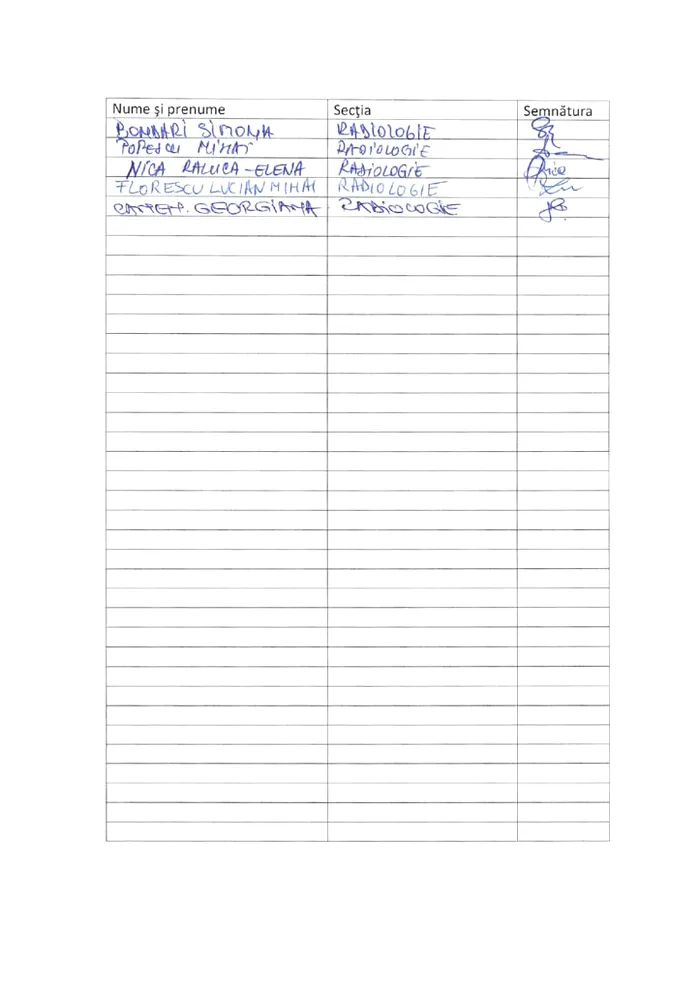 Nume și prenume Secția Semnătura
BONDARI SIMONA RADIOLOGIE
POPESCU MIHAI RADIOLOGIE
NICA RALUCA-ELENA RADIOLOGIE
FLORESCU LUCIAN MIHAI RADIOLOGIE
GEORGIANA RADIOLOGIE